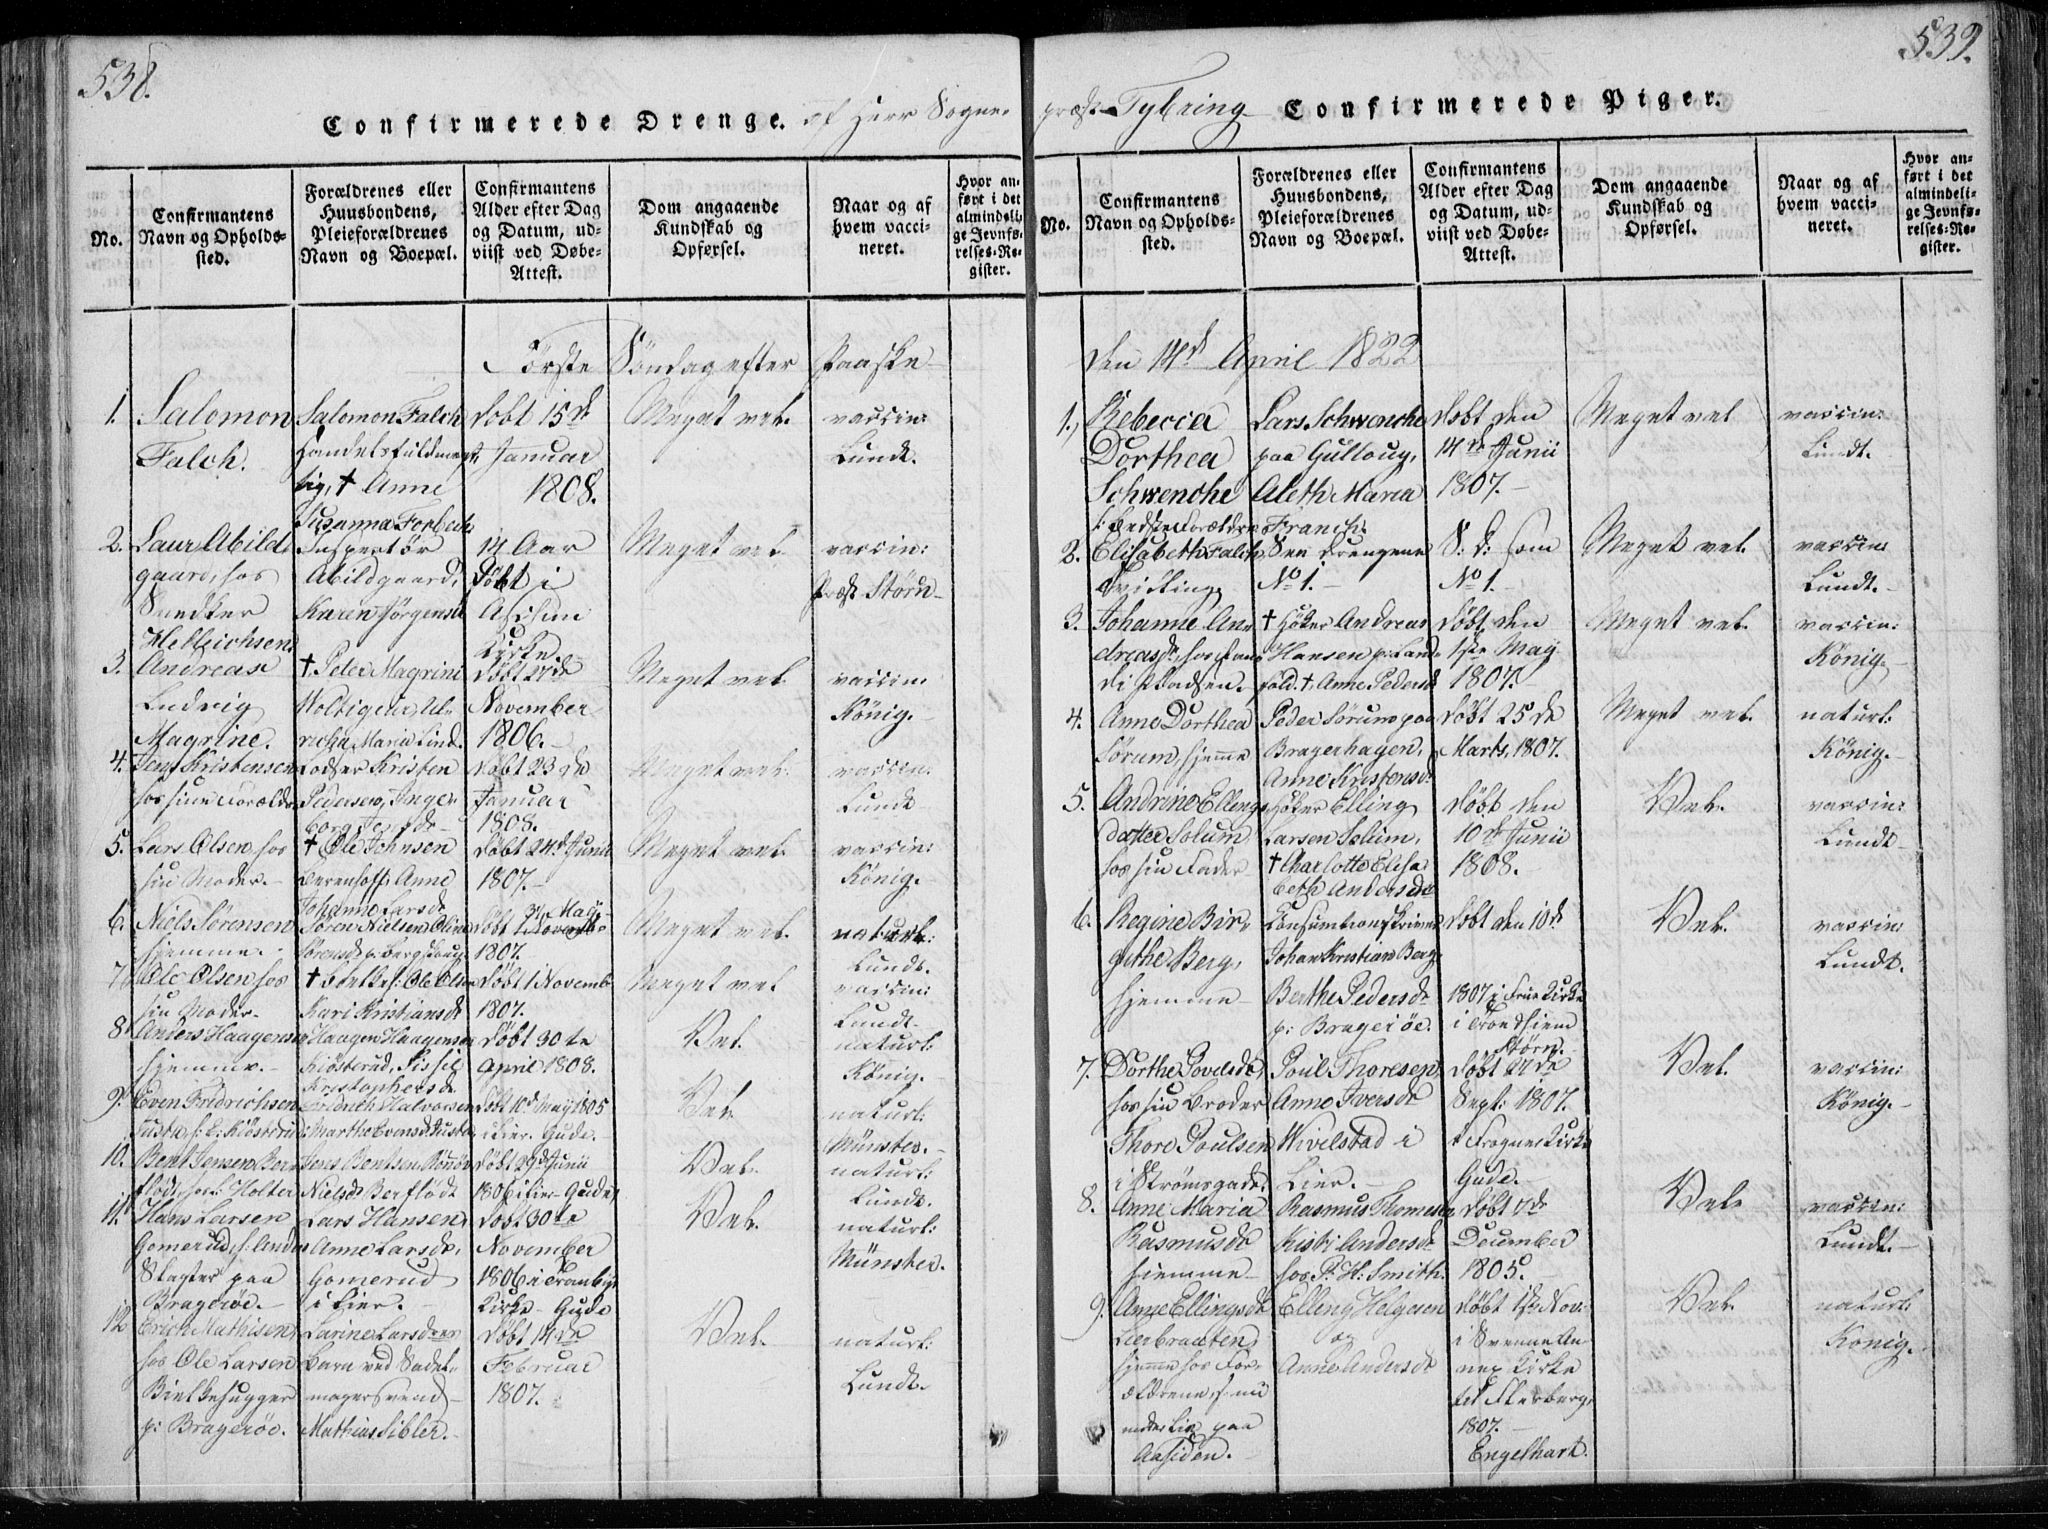 538.
Confirmerede Drenge. af Herr Sogne-
No.
Confirmantens
Navn og Opholds-
sted.
Forældrenes eller
Huusbondens,
Pleieforældrenes
Navn og Boepæl.
Confirmantens
Alder efter Dag
og Datum, ud-
viist ved Døbe-
Attest.
Dom angaaende
Kundskab og
Opførsel.
Naar og af
hvem vacci-
neret.
Hvor an-
ført i det
almindeli-
ge Jevnfø-
relses-Re-
gister.
Første Söndag efter Paaske
1.
Salomon
Falch.
Salomon Falch
Handelsfuldmæg-
tig, † Anne
Susanna Forbech
döbt 15d
Januar
1808.
Meget vel.
vaccin:
Lundt.
2.
Laur Abild-
gaard, hos
Snedker
Inspectör
Abildgaard,
Karen Jörgensd
14 Aar
döbt i
Kirke
Meget vel
vaccin:
Præst Störn
3.
Andreas
Ludvig
Magrine.
† Peter Magrini
Maria Lind.
döbt 27de
November
1806.
Meget vel.
vaccin:
König.
4.
Jens Kristensen
hos sine Foræld:
Lodser Kristen
Pedersen, Inge-
borg Jensd
döbt 23de
Januar
1808.
Meget vel.
vaccin:
Lundt
5.
Lars Olsen hos
sin Moder.
† Ole Johnsen
Anne
Johanne Larsd
döbt 24d Junii
1807.
Meget vel.
vaccin:
König.
6.
Niels Sörensen
hjemme.
Sören Nielsen, Oline
döbt
1807.
Meget vel.
naturl:
Lundt.
7
Ole Olsen hos
sin Moder.
† Ole Olsen
Kari Kristiansd
döbt 1 Novemb
1807.
Meget vel
vaccin:
Lundt.
8
Anders Haagensen
hjemme.
Haagen Haagensen
Kiösterud, Sissil
Kristophersd
döbt 30te
April 1808.
Vel.
naturl:
König.
9.
Even Fridrichsen
Fridrich Halvorsen
döbt 10d May 1805
i Lier. Gude.
Vel.
naturl:
Münster.
10.
Bent Jensen Ber-
flödt, hos: Holter
Jens Bentsen,
Nielsd Berflödt
döbt 29d Junii
1806 i Lier. Gude,
Vel.
naturl:
Lundt.
11.
Hans Larsen
Gomerud,
Slagter paa
Brageröe.
Lars Hansen,
Anne Larsd,
Gomerud
i Lier.
döbt 30te
November
1806 i Tranby
Kirke - Gude
Vel.
naturl:
Münster.
12
Erich Mathisen,
hos Ole Larsen
p: Brageröe.
Larine Larsdtrs
Barn ved Sadel-
magersvend
Mathias Sibler.
döbt 14de
Februar
1807.
Vel.
naturl:
Lundt.
539.
præst Tybring Confirmerede Piger.
No.
Confirmantens
Navn og Opholds-
sted.
Forældrenes eller
Huusbondens,
Pleieforældrenes
Navn og Boepæl.
Confirmantens
Alder efter Dag
og Datum, ud-
viist ved Døbe-
Attest.
Dom angaaende
Kundskab og
Opførsel.
Naar og af
hvem vacci-
neret.
Hvor an-
ført i det
almindeli-
ge Jevnfø-
relses-Re-
gister.
den 14d April 1822
1.
Rebecca
Dorthea
Schwenche
Lars Schwenche
paa Gulloug,
Aleth Maria
Franch.
döbt den
14de Junii
1807.
Meget vel
vaccin:
Lundt.
2.
Elisabeth Falch,
Tvilling
See Drengene
No 1.
S: d: som
No 1.
Meget vel.
vaccin:
Lundt.
3.
Johanne An-
dreasd, hos
Madsen.
† Höker Andreas
Hansen p: Land-
fald. †, Anne Pedersd
döbt den
1ste May
1807.
Meget vel.
vaccin:
König.
4.
Anne Dorthea
Sörum, hjemme
Peder Sörum paa
Bragerhagen,
Anne Kristensd
döbt 25de
Marts, 1807.
Meget vel.
naturl:
König.
5.
Andrine Ellings-
datter Solum
hos sin Fader
Höker Elling
Larsen Solum,
† Charlotte Elisa-
beth Andersd
döbt den
10d Junii
1808.
Vel.
vaccin:
Lundt
6.
Regine Bir-
githe Berg,
hjemme
Consumtionsskriver
Johan Kristian Berg
Berthe Pedersd
p: Brageröe.
döbt den 10d
1807 i Frue Kirke
i Trondhiem
Störn.
Vel.
vaccin:
Lundt.
7.
Dorthe Povelsd,
hos sin Broder
Thore Poulsen
i Strömsgade.
Poul Thoresen
Anne Iversd
Wivelstad i
Lier.
döbt 27de
Sept: 1807.
i Frogner Kirke
Gude.
Vel.
vaccin:
König.
8.
Anne Maria
Rasmusd
hjemme
Rasmus Thomesen
Kisti Andersd
hos P. H: Smith.
döbt 1d
December
1805.
Vel.
vaccin:
Lundt.
9.
Anne Ellingsd
Lierbraaten,
hjemme hos For-
ældrene, s: nu
paa
Aasiden.
Elling Helgesen
og
Anne Andersd
döbt 1ste Nov:
i Svenne An-
nex Kirke
til Flesberg,
1807.
Engelhart.
Vel.
naturl:
König.